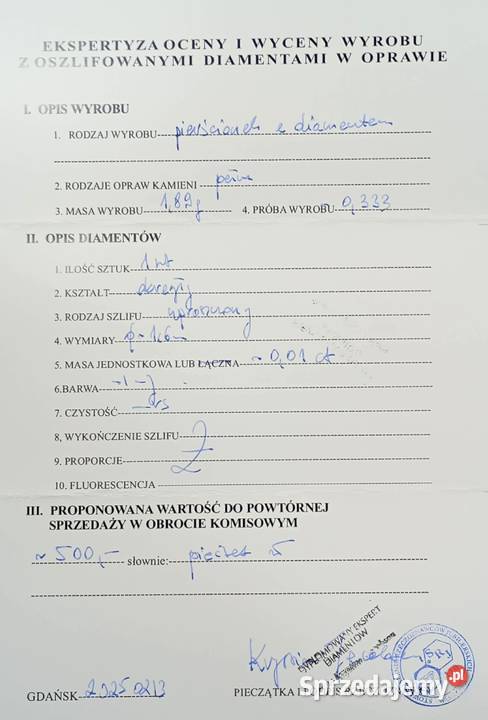 EKSPERTYZA OCENY I WYCENY WYROBU
Z OSZLIFOWANYMI DIAMENTAMI W OPRAWIE
I. OPIS WYROBU
1. RODZAJ WYROBU pierścionek z diamentem
2. RODZAJE OPRAW KAMIENI pełna
3. MASA WYROBU 1,82g 4. PRÓBA WYROBU 0,333
II. OPIS DIAMENTÓW
1. ILOŚĆ SZTUK 1 szt
2. KSZTAŁT okrągły
3. RODZAJ SZLIFU uproszczony
4. WYMIARY
5. MASA JEDNOSTKOWA LUB ŁĄCZNA ~ 0,01 ct
6.BARWA
7. CZYSTOŚĆ
8, WYKOŃCZENIE SZLIFU
9. PROPORCJE
10. FLUORESCENCJA
III. PROPONOWANA WARTOŚĆ DO POWTÓRNEJ
SPRZEDAŻY W OBROCIE KOMISOWYM
~ 500,- słownie: pięćset zł
DYPLOMOWANY EKSPERT
DIAMENTÓW
GDAŃSK 20250213 PIECZĄTKA I
Sprzedajemy.pl